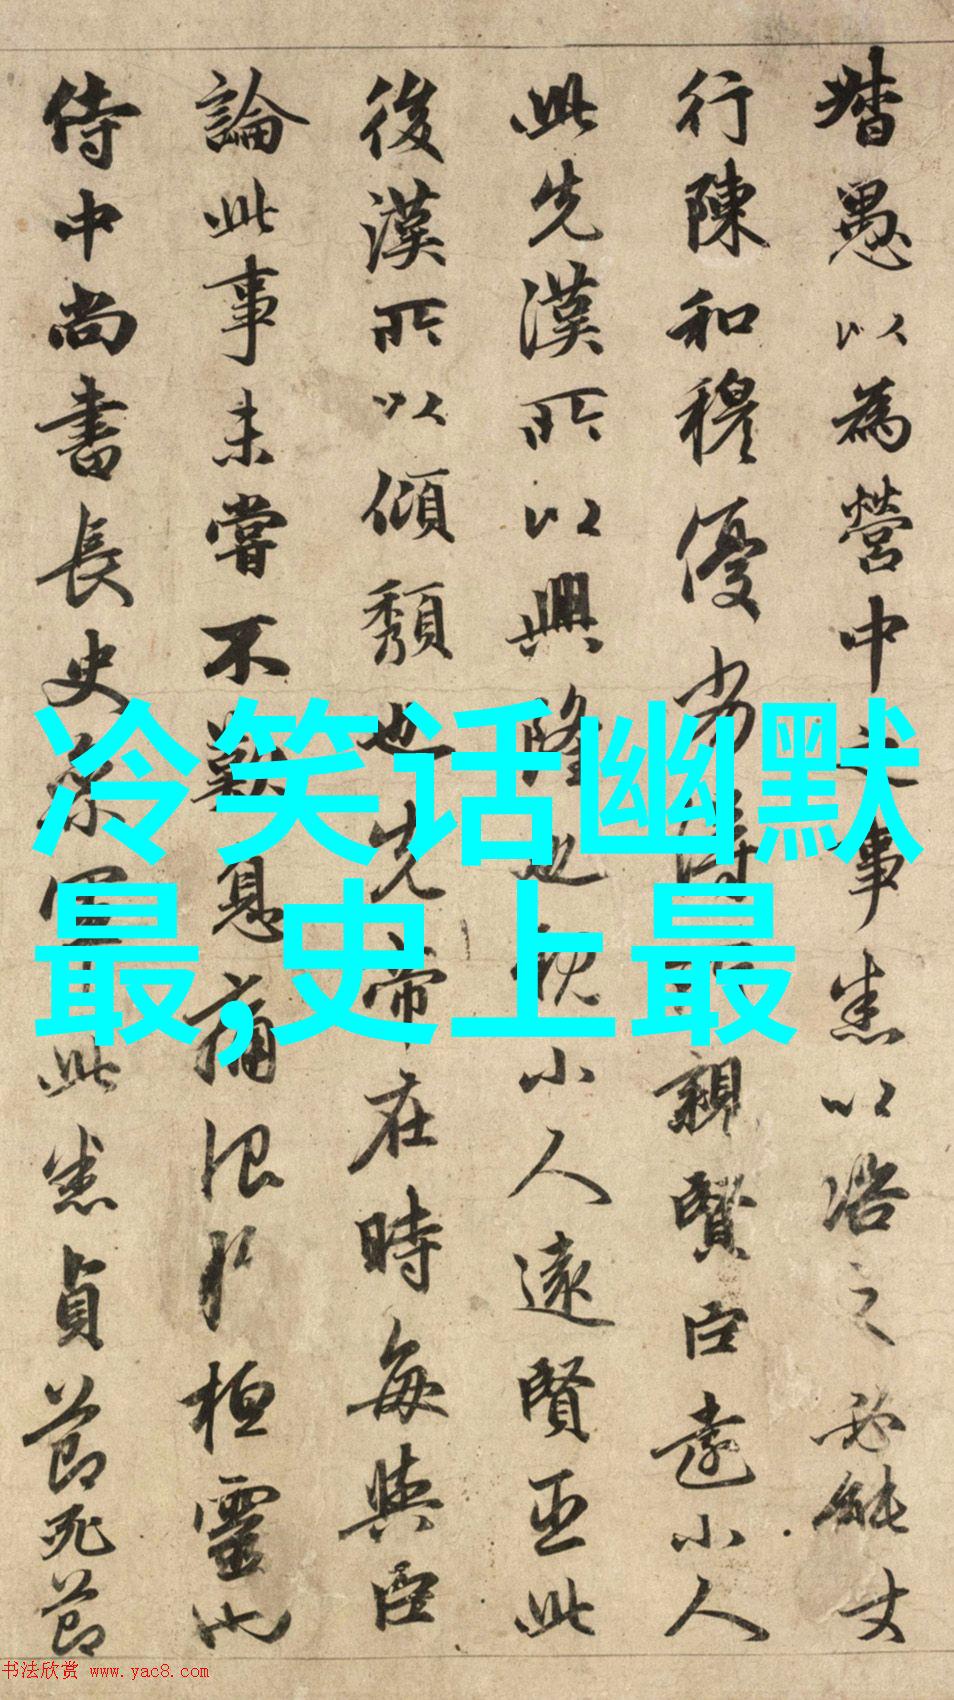 督愚以為營中之事悉以諮之必能使
行陳和穆優劣得所親賢臣遠小人
此先漢所以興隆也親小人遠賢臣此
後漢所以傾頹也先帝在時每與臣
論此事未嘗不歎息痛恨於桓靈也
侍中尚書長史參軍此悉貞節死節
冷笑话幽默
最,史上最
书法欣赏 www.yac8.com